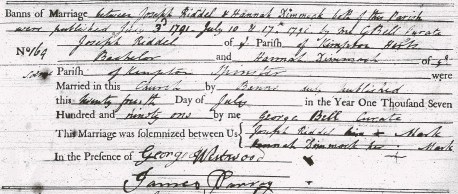 Banns of Marriage between Joseph Riddel & Hannah Kimmock both of this Parish
were published July 3rd 1791 July 10 & 17th 1791 by me G Bell Curate
No 169 Joseph Riddel of ye Parish of Kimpton Herts
Bachelor and Hannah Kimmock of ye
same Parish of Kimpton Spinster
Married in this Church by Banns duly published
this twenty fourth Day of July in the Year One Thousand Seven
Hundred and ninety one by me George Bell Curate
This Marriage was solemnized between Us Joseph Riddel his + Mark
Hannah Kimmock her + Mark
In the Presence of George Westwood
James